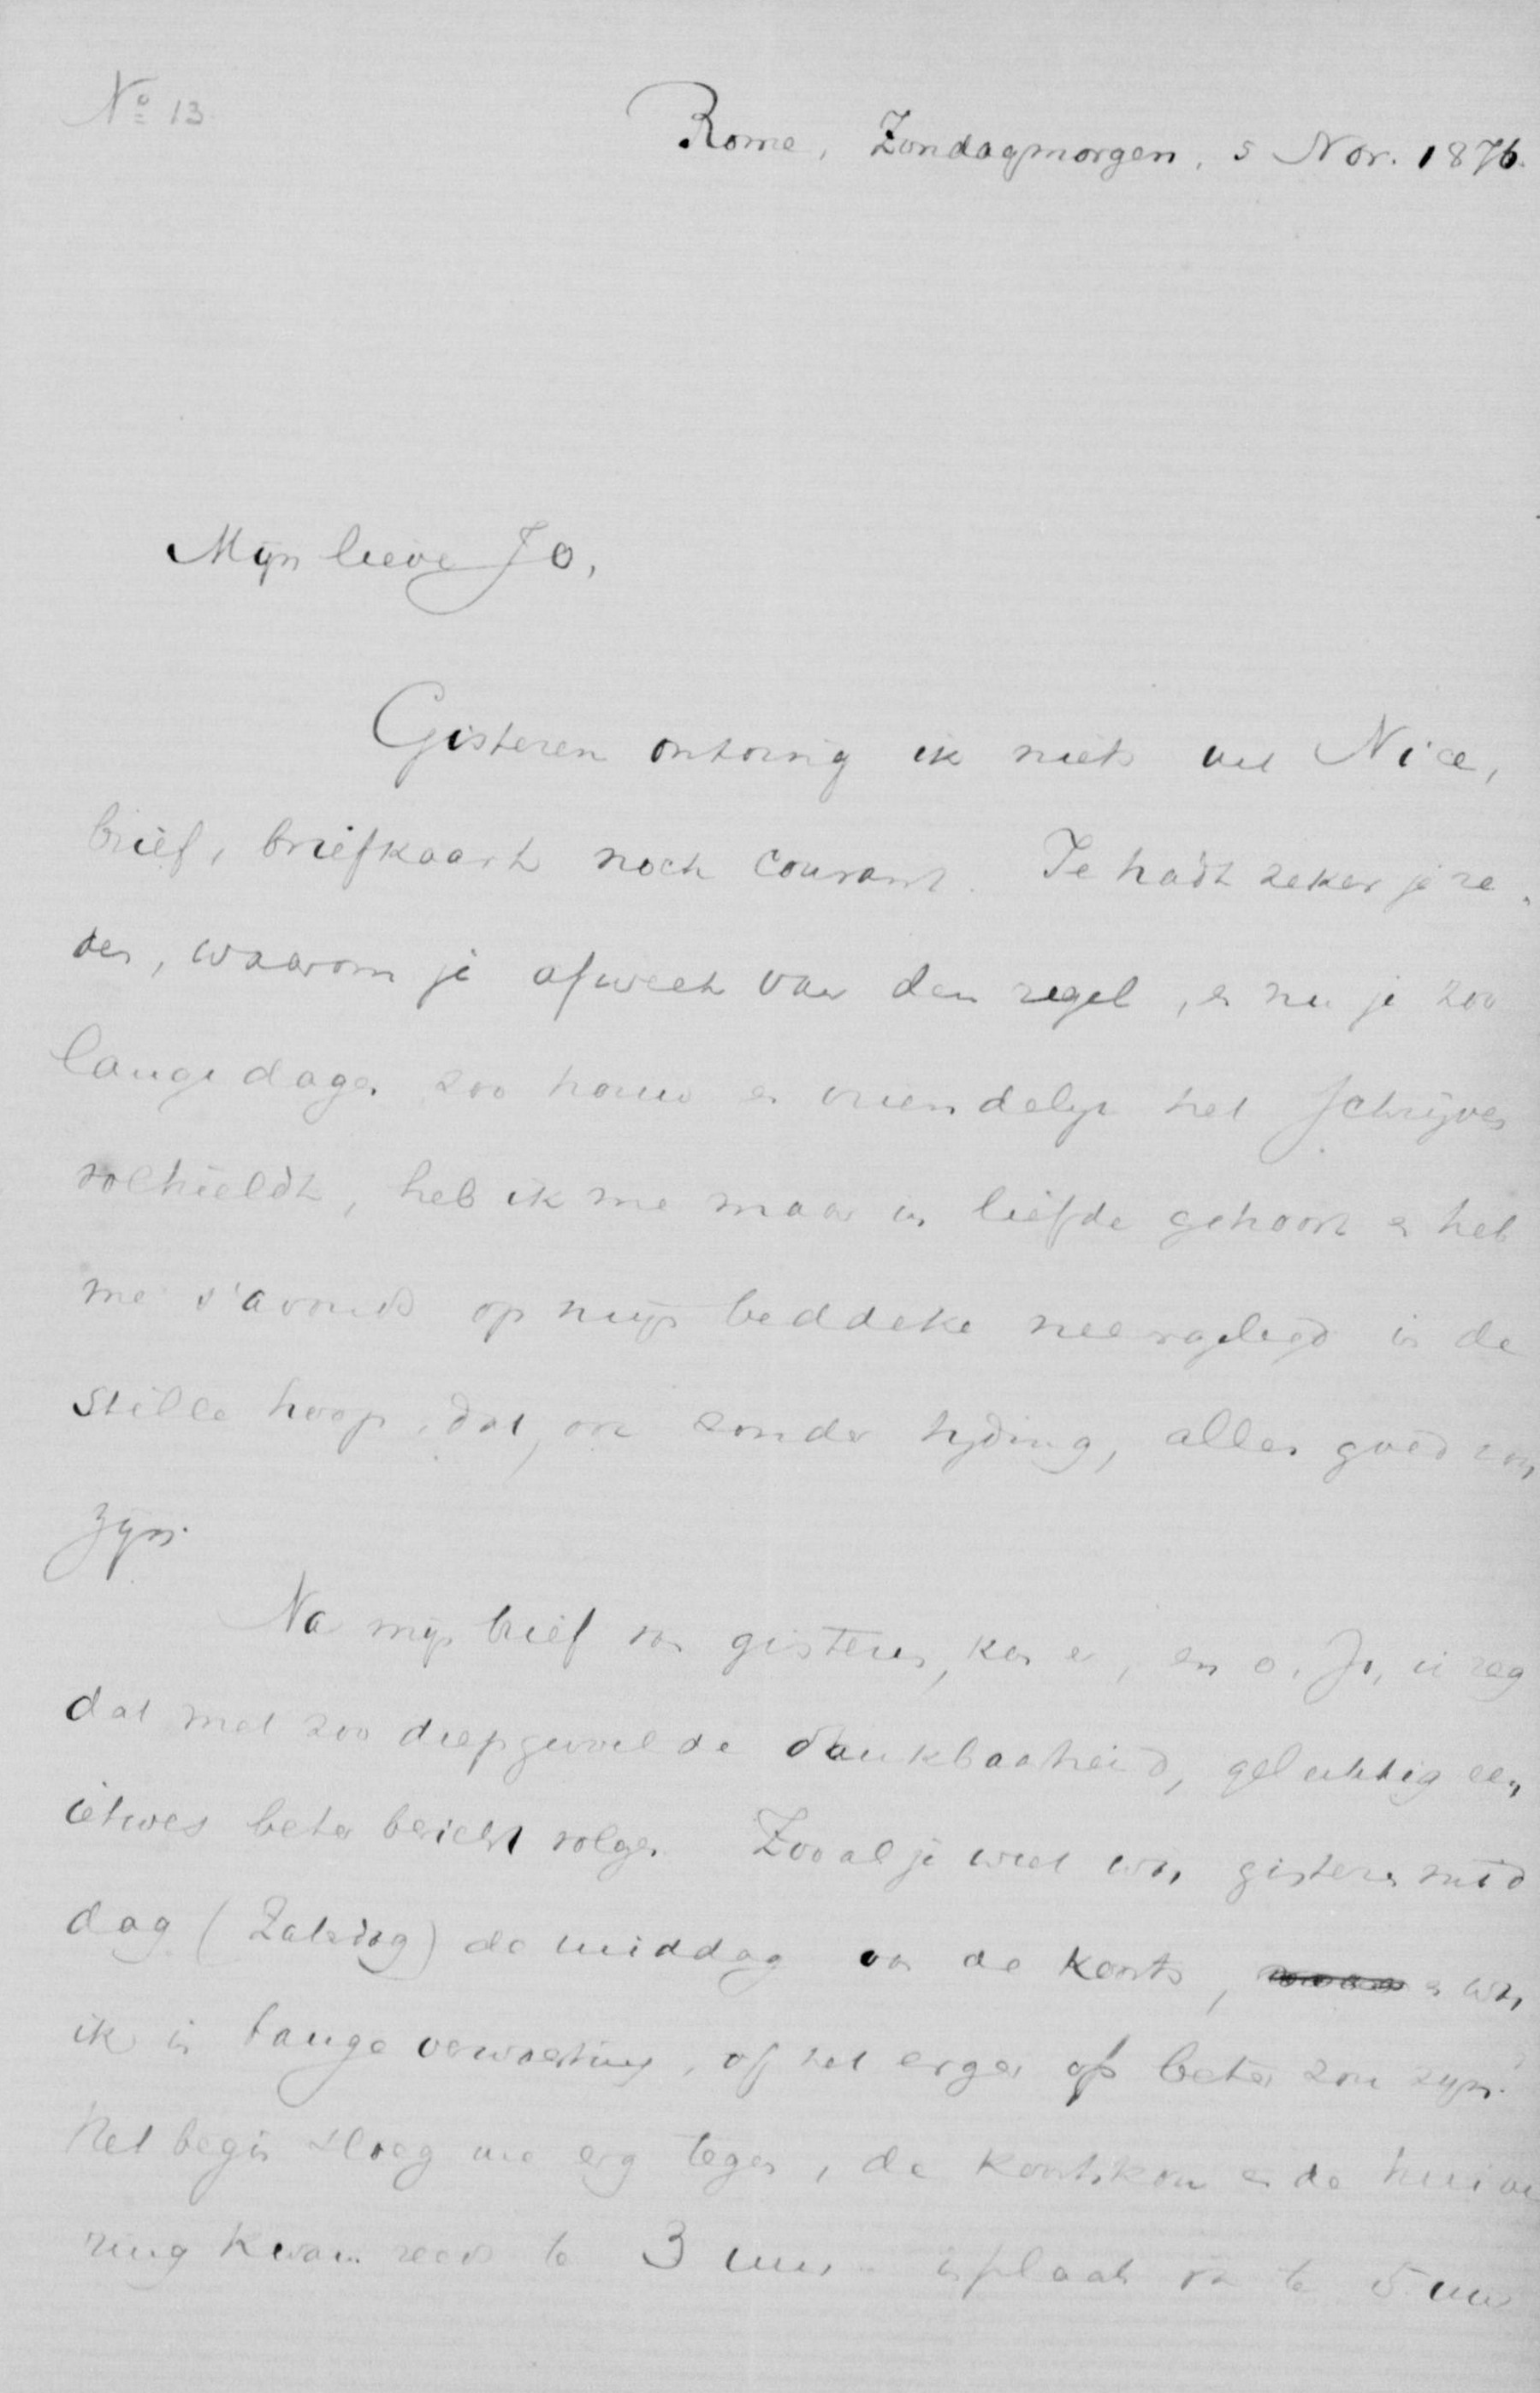 No 13.
Rome, Zondagmorgen, 5 Nov. 1876.
Mijn lieve Jo,
Gisteren ontving ik niets uit Nice,
brief, briefkaart noch courant. Je hadt zeker je re-
den, waarom je afweek van den regel, en nu je zoo
lange dagen zoo trouw en vriendelijk het schrijven
volhieldt, heb ik me maar in liefde getroost en heb
me s'avonds op mijn beddeke neergelegd in de
stille hoop, dat, ook zonder tijding, alles goed zou
zijn.
Na mijn brief van gisteren, kan er, en o, Jo, ik zeg
dat met zoo diepgevoelde dankbaarheid, gelukkig een
ietwes beter bericht volgen. Zooals je weet was gisteren mid
dag (Zaterdag) de middag van de koorts, en was
ik in bange verwachting, of het erger of beter zou zijn.
Het begin sloeg me erg tegen, de koortskou en de huive
ring kwam reeds te 3 uur inplaats van te 5 uur